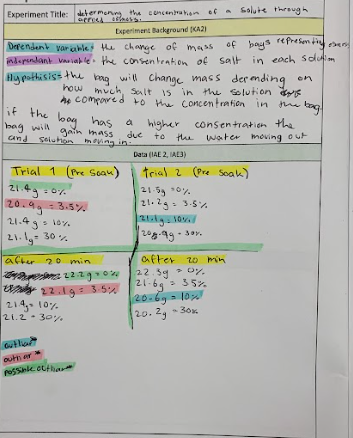 Experiment Title: determening the concentration of a solute through
Experiment Background (KA2)
Dependent variable= the change of mass of bags representing
independent variable= the consentration of salt in each solution
Hypothisis= the bag will change mass depending on
how much salt is in the solution
compared to the concentration in the bag
if the bag has a higher consentration the
bag will gain mass due to the water moving out
and solution moving in.
Data (IAE 2, IAE3)
Trial 1 (Pre Soak)
21.4g = 0%
20.9g = 3.5%
21.4g = 10%
21.1g = 30%
trial 2 (Pre Soak)
21.5g = 0%
21.2g = 3.5%
21.1g = 10%
.9g = 30%
after 20 min
22.2g = 0%
22.1g = 3.5%
21.4g = 10%
21.2 = 30%
after 20 min
22.3g = 0%
21.6g = 3.5%
20.6g = 10%
20.2g = 30%
outliar
outliar
possible outliar